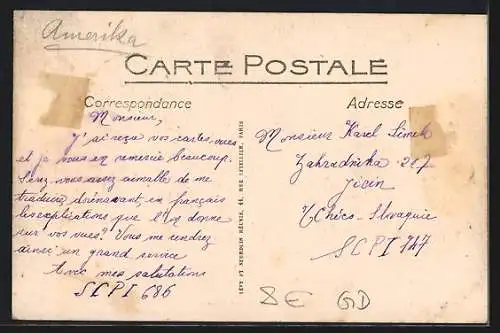 Amerika
CARTE POSTALE
Correspondance
Adresse
Monsieur,
J'ai reçu vos cartes-vues
et je vous en remercie beaucoup.
Serez-vous assez aimable de me
traduire dorénavant en français
les explications que l'on donne
sur vos vues? Vous me rendrez
ainsi un grand service
Avec mes salutations
SCPI 686
LÉVY ET NEURDEIN RÉUNIS, 44, RUE LETELLIER, PARIS
Monsieur Karel Simek
Zahradnika 207
Jicin
Tchéco-Slovaquie
SCPI 747
8E GD